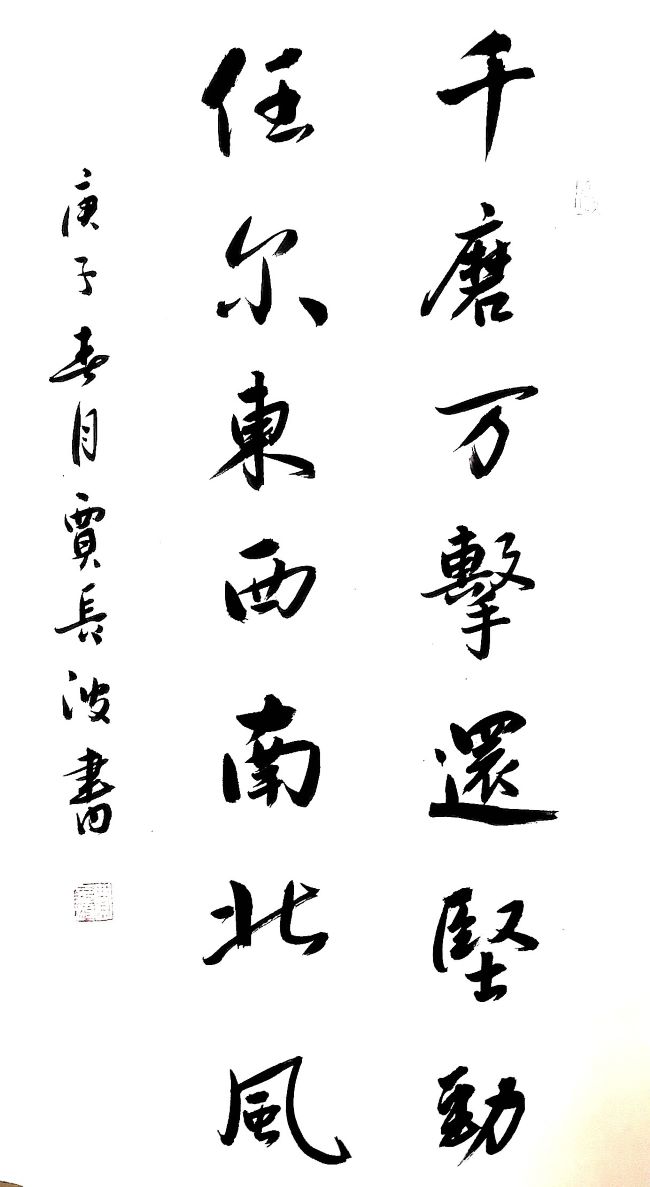 千磨万擊還堅勁
任尔東西南北風
庚子春月賈長波書